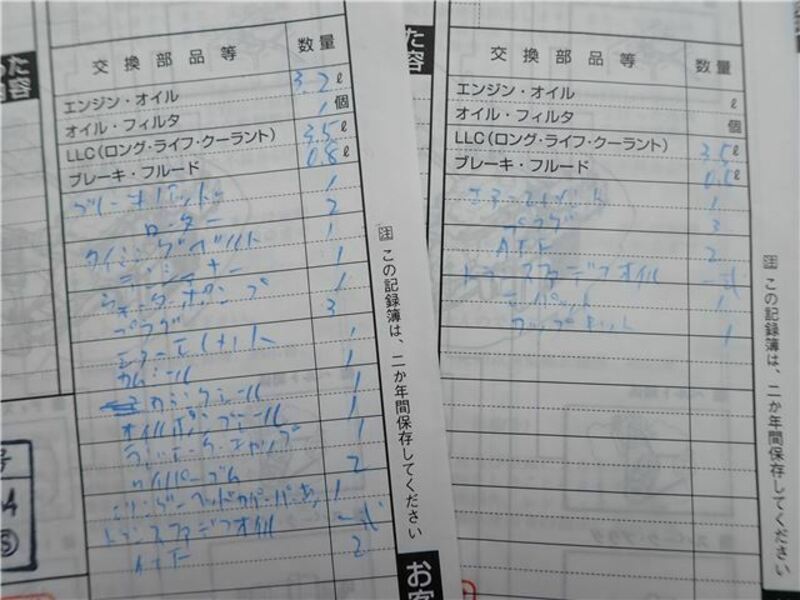 交換部品等 数量
エンジン・オイル 3.2ℓ
オイル・フィルタ 1個
LLC(ロング・ライフ・クーラント) 3.5ℓ
ブレーキ・フルード 0.8ℓ
ブレーキパット 1
ローター 2
タイミングベルト 1
テンショナー 1
ウォーターポンプ 1
プラグ 3
エアーエレメント 1
カムシール 1
クランクシール 1
オイルポンプシール 1
ラジエーターキャップ 1
ワイパーゴム 2
シリンダーヘッドカバーパッキン 1
トランスファデフオイル 一式
ATF 2
注 この記録簿は、二か年間保存してください
お客
た
容
交換部品等 数量
エンジン・オイル ℓ
オイル・フィルタ 個
LLC(ロング・ライフ・クーラント) 3.5ℓ
ブレーキ・フルード 0.5ℓ
エアーエレメント 1
プラグ 3
ATF 2
トランスファデフオイル 一式
パット 1
カップキット 1
注 この記録簿は、二か年間保存してください